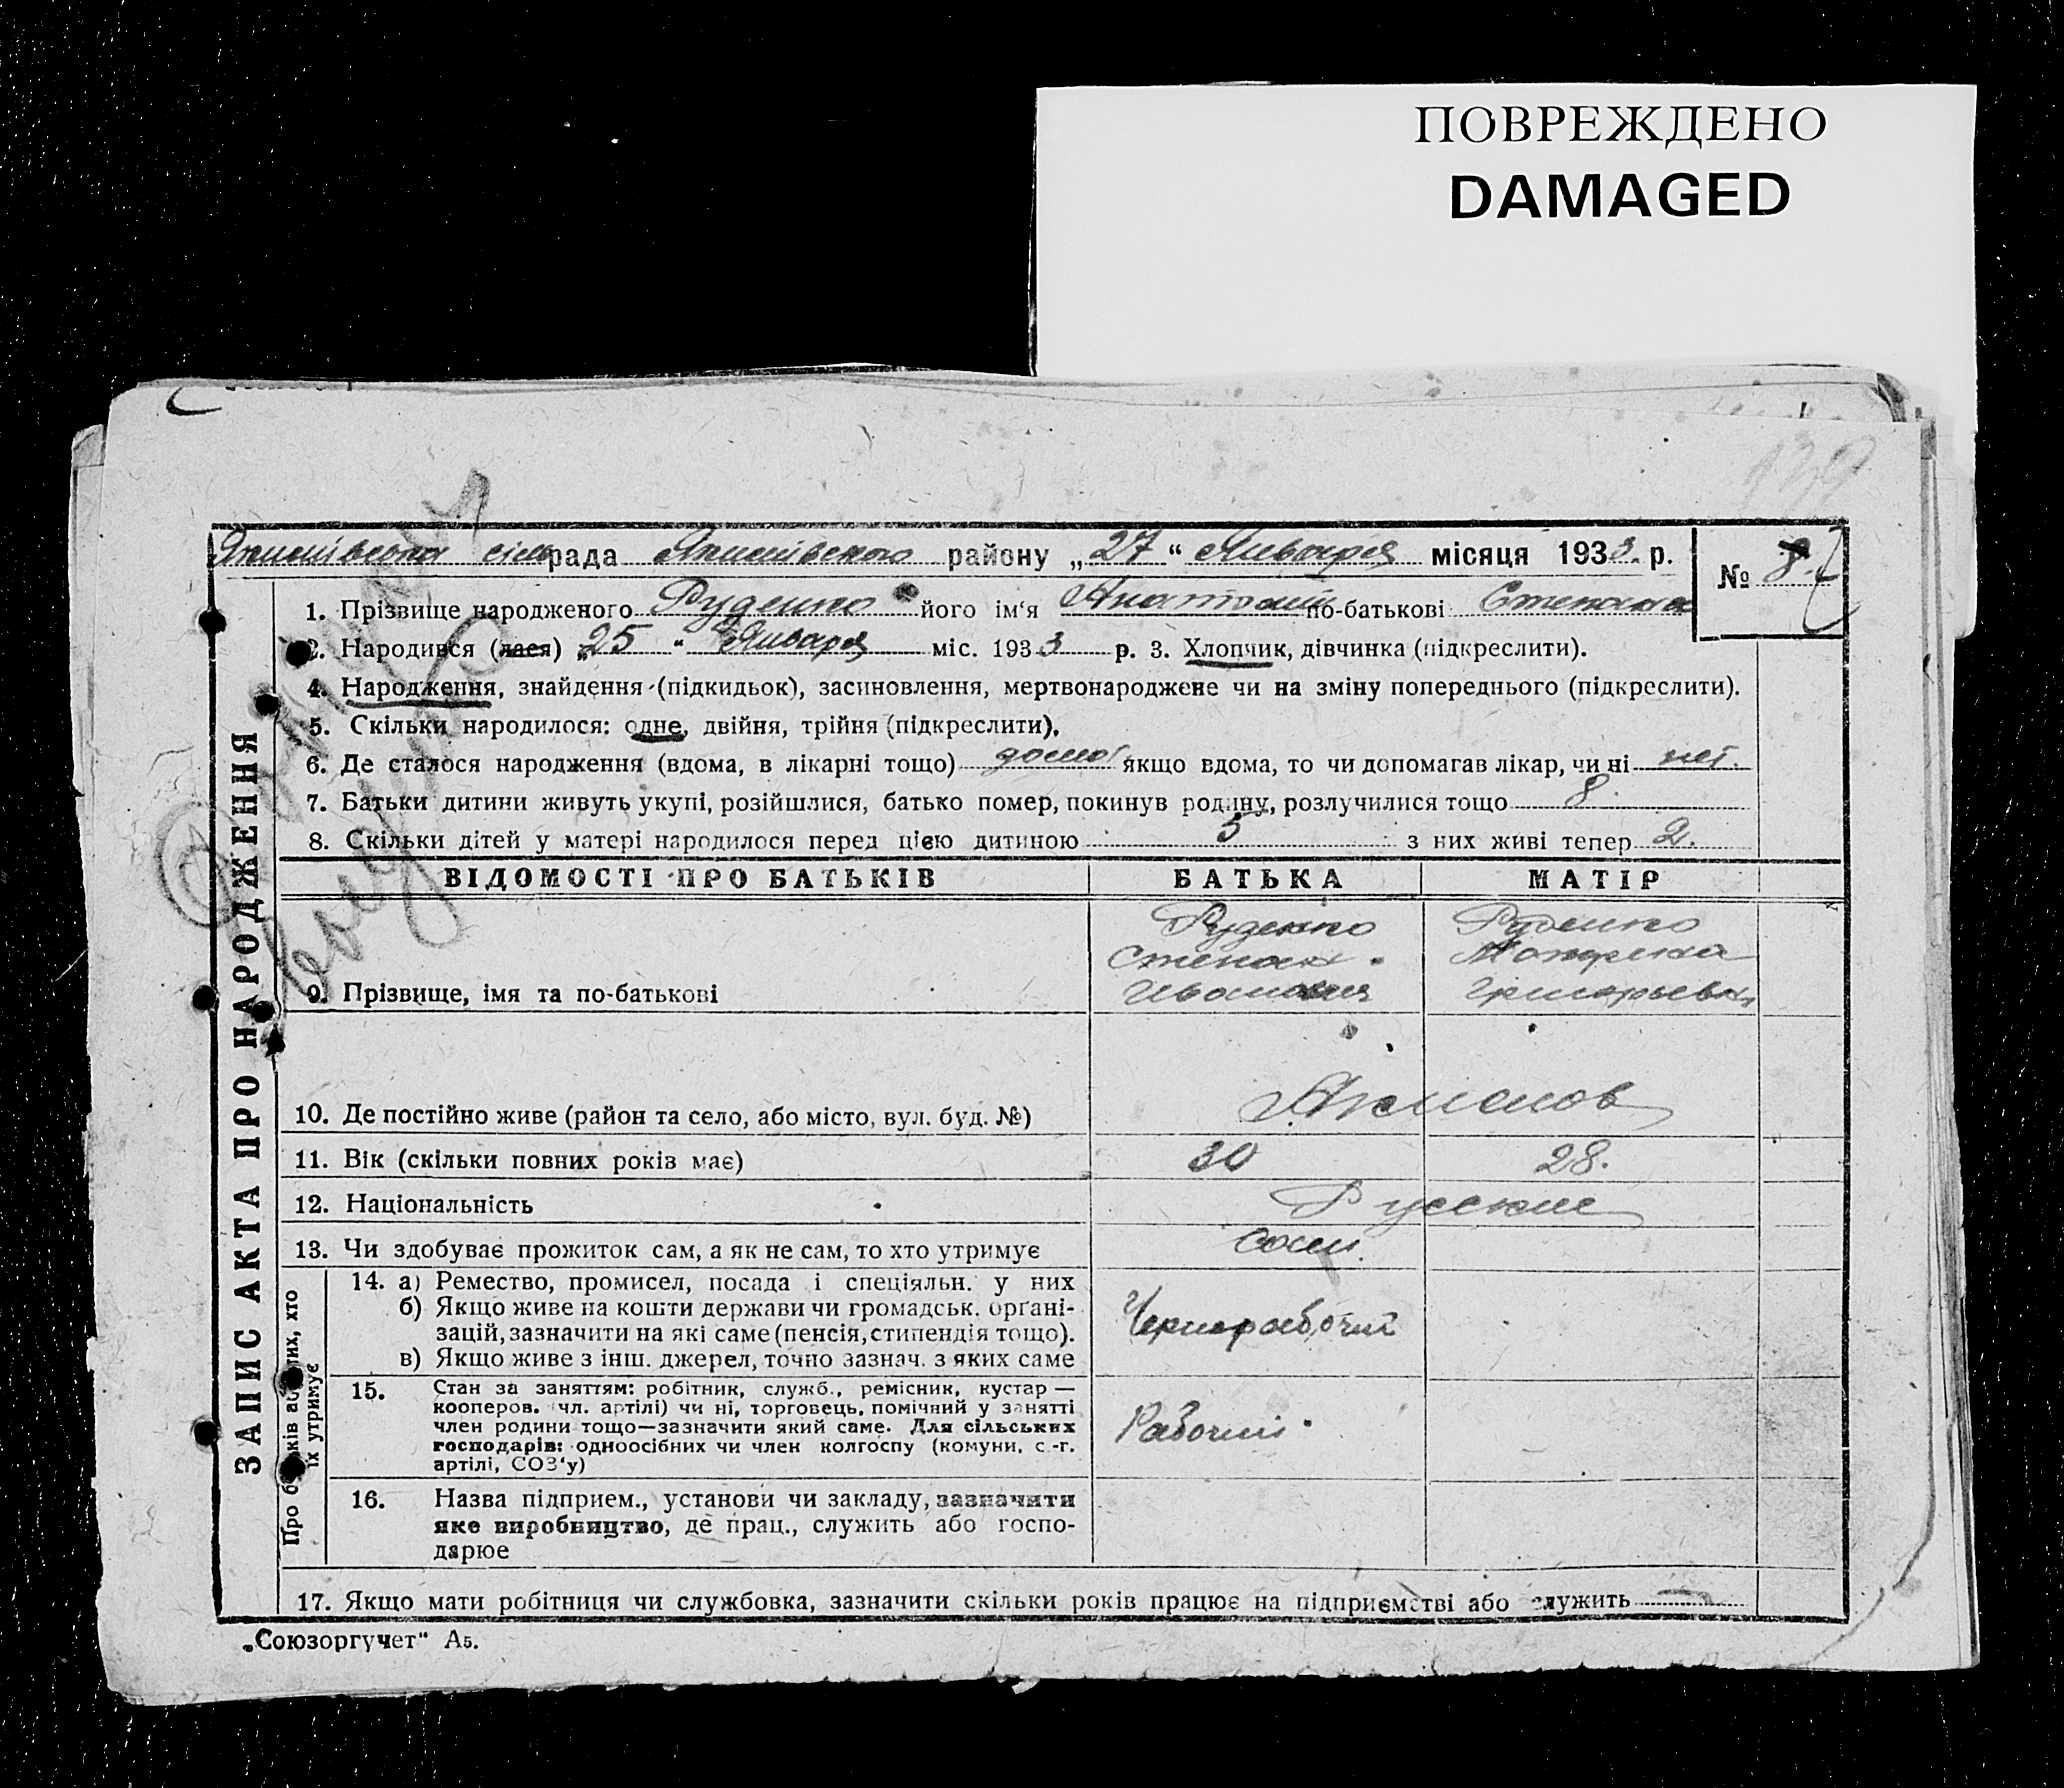 ПОВРЕЖДЕНО
DAMAGED
139
сільрада района району „27“ Января місяця 1933. р.
№ 8
1. Прізвище народженого Руденко його ім‘я Анатолий по-батькові Степанов
2. Народився (лася) „25“ Января міс. 1933 р. 3. Хлопчик, дівчинка (підкреслити).
4. Народження, знайдення (підкидьок), засиновлення, мертвонароджене чи на зміну попереднього (підкреслити).
5. Скільки народилося: одне, двійня, трійня (підкреслити).
6. Де сталося народження (вдома, в лікарні тощо) дома якщо вдома, то чи допомагав лікар, чи ні нет.
7. Батьки дитини живуть укупі, розійшлися, батько помер, покинув родину, розлучилися тощо 8.
8. Скільки дітей у матері народилося перед цією дитиною 5 з них живі тепер 2.
ВІДОМОСТІ ПРО БАТЬКІВ БАТЬКА МАТІР
9. Прізвище, імя та по-батькові Руденко Степан Иванович Руденко Григорьевна
10. Де постійно живе (район та село, або місто, вул. буд. №)
11. Вік (скільки повних років має) 30 28.
12. Національність Русские
13. Чи здобуває прожиток сам, а як не сам, то хто утримує Сам
14. а) Ремество, промисел, посада і спеціяльн. у них
б) Якщо живе на кошти держави чи громадськ. орґані-
зацій, зазначити на які саме (пенсія, стипендія тощо).
в) Якщо живе з інш. джерел, точно зазнач. з яких саме
Чернорабочий
15. Стан за заняттям: робітник, служб., ремісник, кустар —
кооперов. чл. артілі) чи ні, торговець, помічний у занятті
член родини тощо—зазначити який саме. Для сільських
господарів: одноосібних чи член колгоспу (комуни, с.-г.
артілі, СОЗ‘у)
Рабочий
16. Назва підприєм., установи чи закладу, зазначити
яке виробництво, де прац., служить або госпо-
дарює
17. Якщо мати робітниця чи службовка, зазначити скільки років працює на підприємстві або служить
„Союзоргучет“ А5.
ЗАПИС АКТА ПРО НАРОДЖЕННЯ
Про батьків або тих, хто
їх утримує